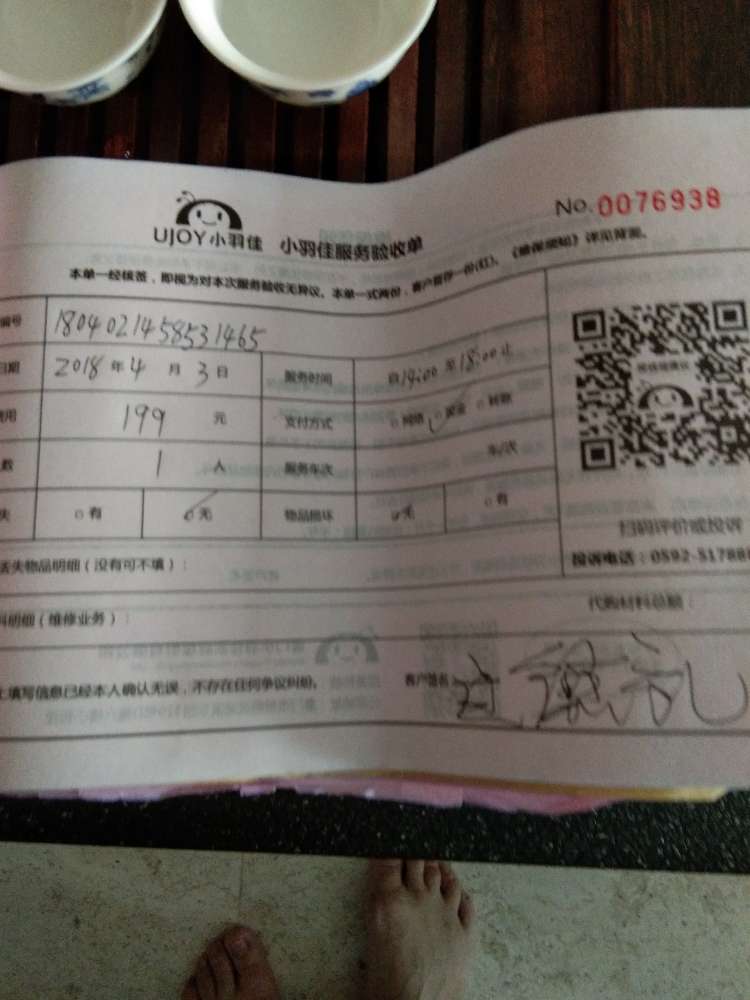 No. 0076938
UJOY小羽佳 小羽佳服务验收单
本单一经核签，即视为对本次服务验收无异议。本单一式两份，客户留存一份(红)。《维保须知》详见背面。
编号 1804021458531465
日期 2018 年 4 月 3 日 服务时间 自14:00 至 18:00 止
费用 199 元 支付方式 网络 现金 转账
数 1 人 服务车次 车/次
失 有 无 物品损坏 无 有
扫码评价或投诉
丢失物品明细（没有可不填）： 投诉电话：0592-517888
料明细（维修业务）： 代购材料总额：
上填写信息已经本人确认无误，不存在任何争议纠纷。 客户签名